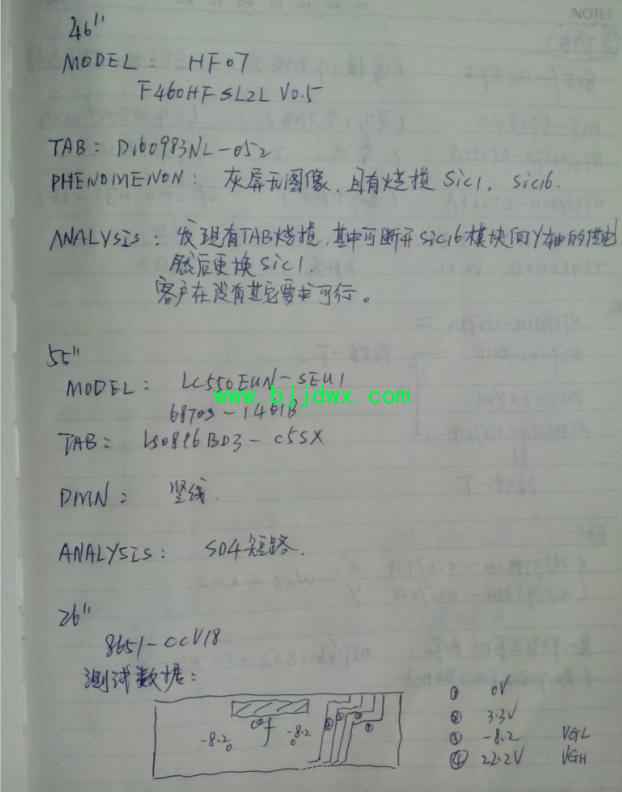 46"
MODEL: HF07
F460HFSL2L V0.5
TAB: D160983NL-052
PHENOMENON: 灰屏无图像,且有烧损 Sic1, Sic16.
ANALYSIS: 发现有TAB烧损,其中可断开Sic16模块向Y轴的供电
然后更换Sic1,
客户在没有其它要求可行。
55"
MODEL: LC550EUN-SEU1
www.bjjdwx.com
6870S-1401B
TAB: LS0816BD3-C5SX
DMN: 竖线
ANALYSIS: SD4短路.
26"
8651-CCV18
测试数据:
-8.2 -8.2
① 0V
② 3.3V
③ -8.2 VGL
④ 22.2V VGH